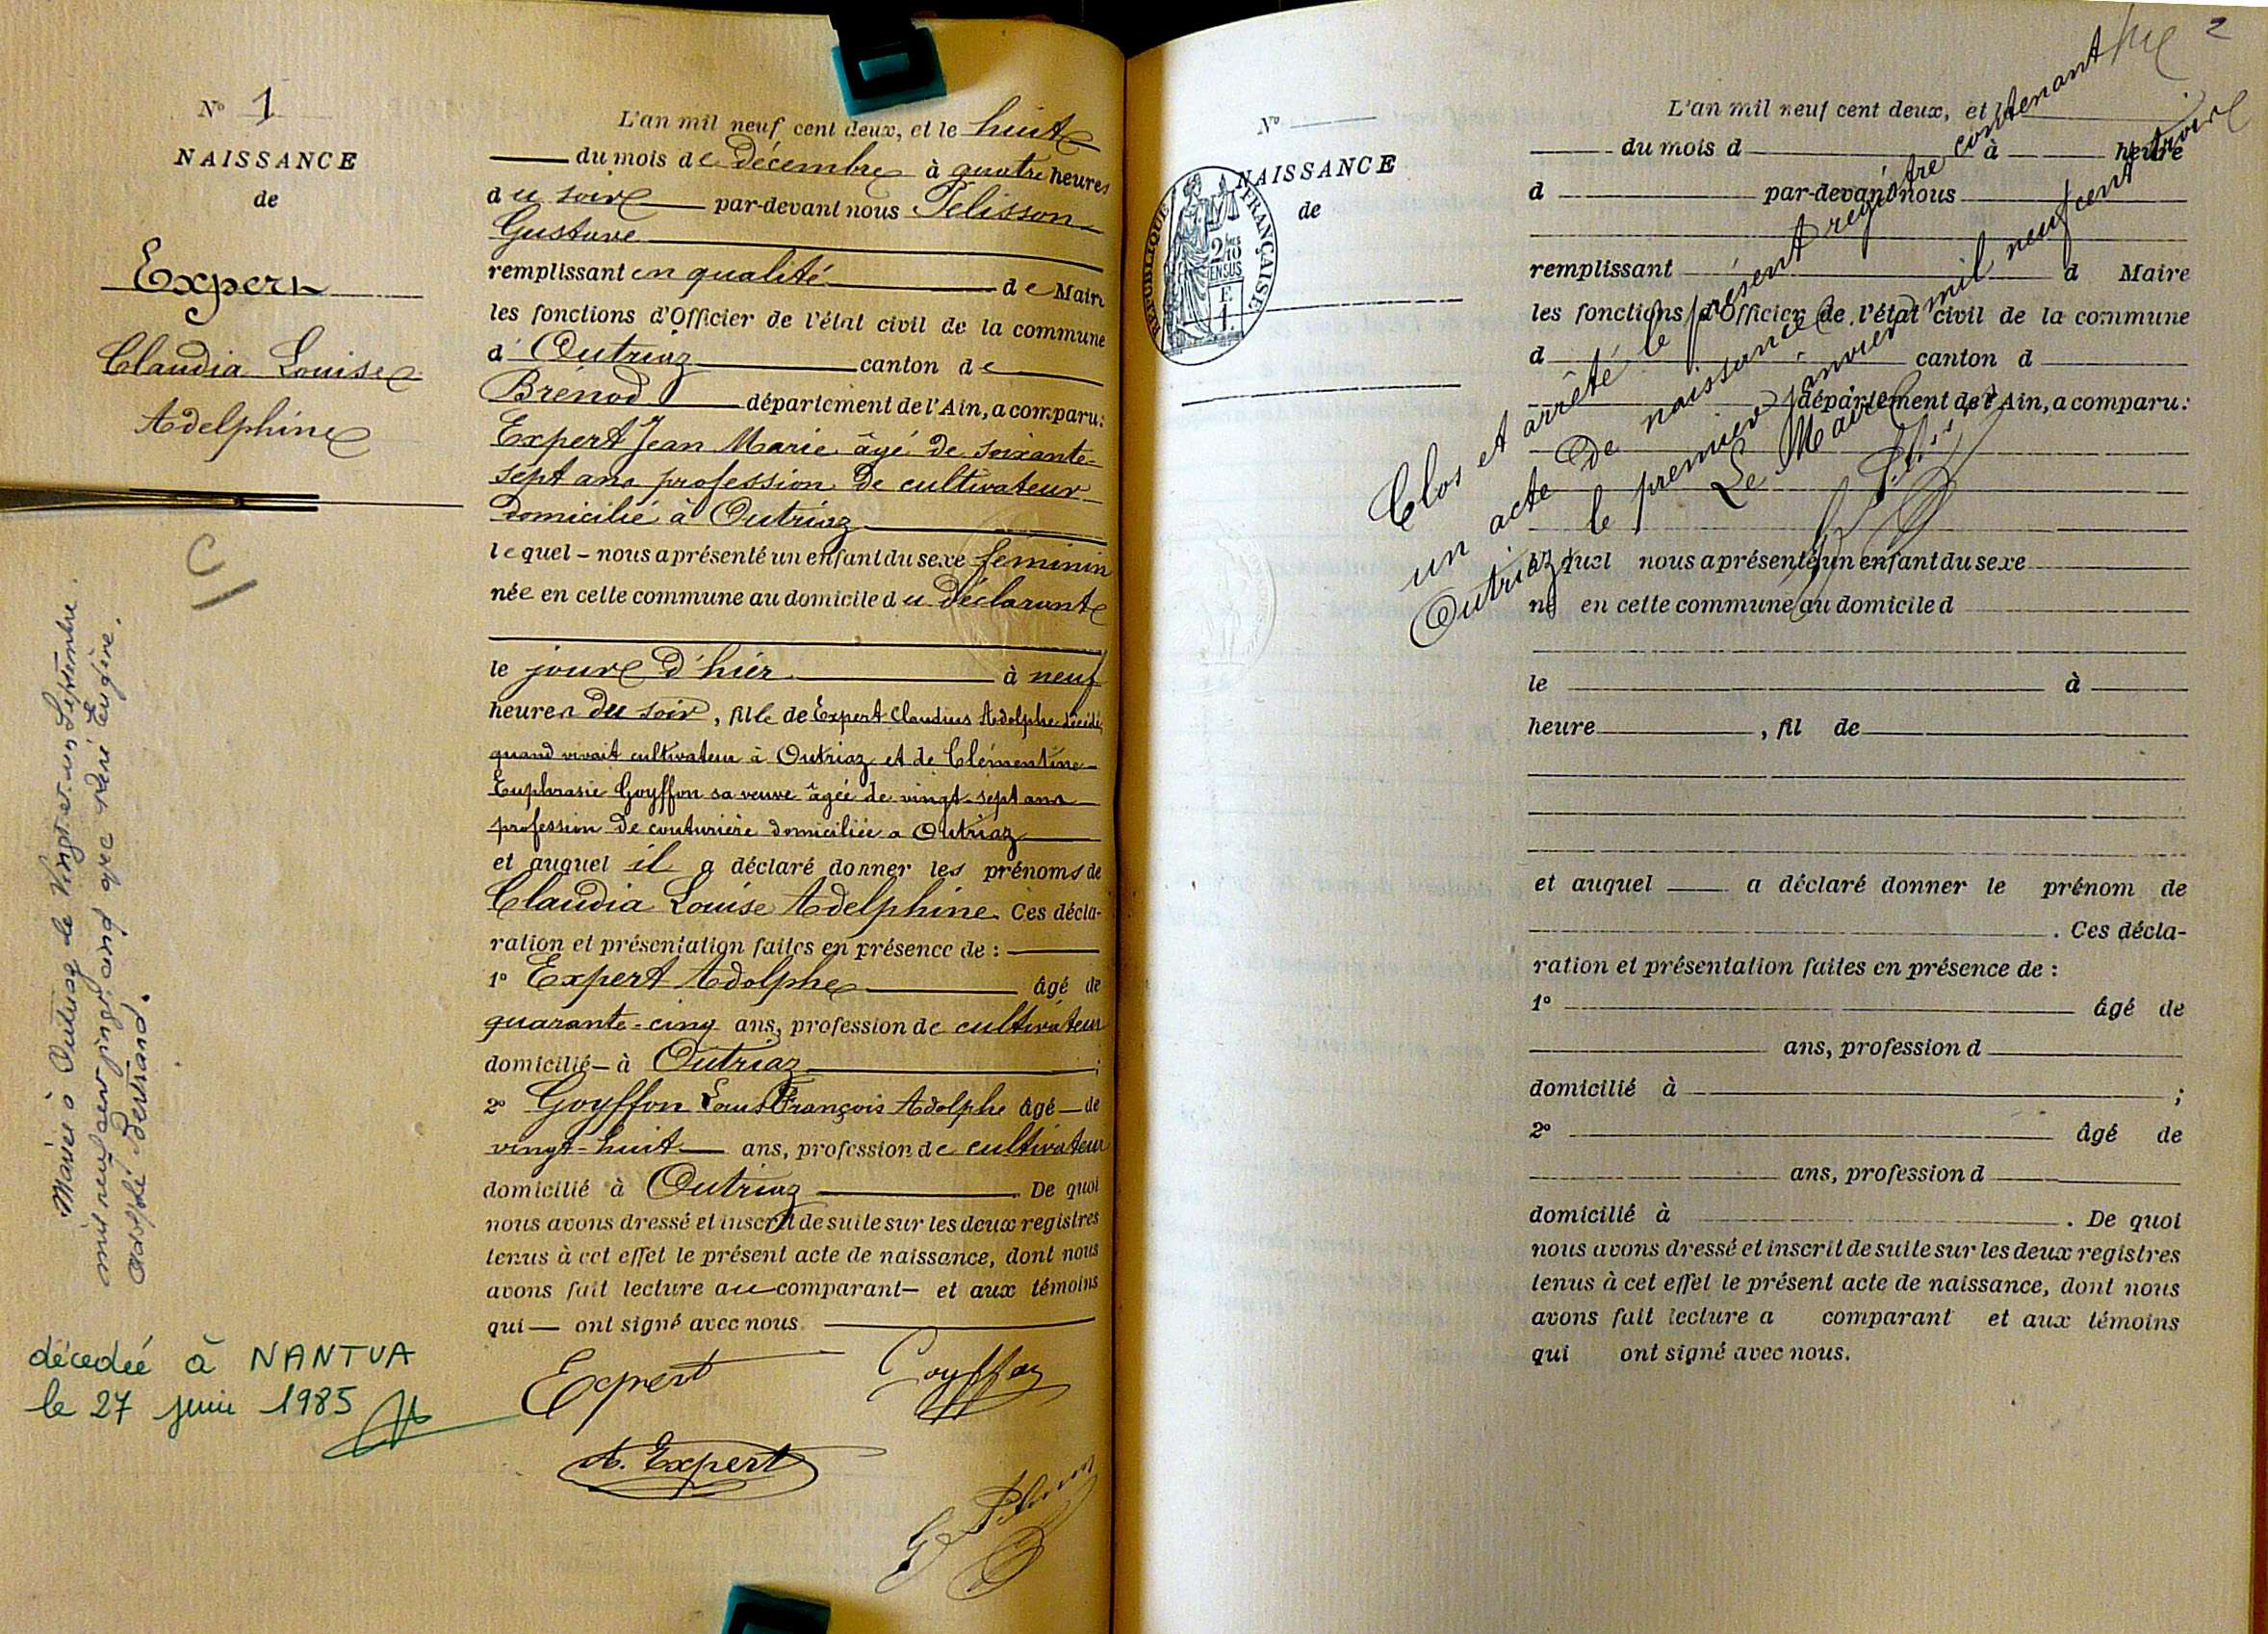 N° 1
NAISSANCE
de
Expert
Claudia Louise
Adelphine
Mariée à Outriaz le Vingt et un Septembre
mil neuf cent vingt cinq avec René Eugène
Adolphe Bertrand.
décédée à NANTUA
le 27 juin 1985
L'an mil neuf cent deux, et le huit
du mois de décembre à quatre heures
du soir par-devant nous Pelisson
Gustave
remplissant en qualité de Maire
les fonctions d'Officier de l'état civil de la commune
d'Outriaz canton de
Brénod département de l'Ain, a comparu:
Expert Jean Marie âgé de soixante-
sept ans profession de cultivateur
domicilié à Outriaz
lequel - nous a présenté un enfant du sexe féminin
née en cette commune au domicile du déclarant
le jour d'hier à neuf
heures du soir, fille de Expert Claudius Adolphe décédé,
quand vivait cultivateur à Outriaz et de Clémentine
Euphrasie Goyffon sa veuve âgée de vingt-sept ans
profession de couturière domiciliée a Outriaz
et auquel il a déclaré donner les prénoms de
Claudia Louise Adelphine. Ces décla-
ration et présentation faites en présence de :
1° Expert Adolphe âgé de
quarante-cinq ans, profession de cultivateur
domicilié - à Outriaz ;
2° Goyffon Louis François Adolphe âgé - de
vingt-huit ans, profession de cultivateur
domicilié à Outriaz . De quoi
nous avons dressé et inscrit de suite sur les deux registres
tenus à cet effet le présent acte de naissance, dont nous
avons fait lecture au comparant - et aux témoins
qui - ont signé avec nous.
Expert Goyffon
A. Expert
2
N°
NAISSANCE
de
RÉPUBLIQUE FRANÇAISE
2 10
EN SUS
L'an mil neuf cent deux, et le
du mois d à heure
d par-devant nous
remplissant d Maire
les fonctions d'Officier de l'état civil de la commune
d canton d
département de l'Ain, a comparu:
lequel nous a présenté un enfant du sexe
né en cette commune au domicile d
le à
heure , fil de
et auquel a déclaré donner le prénom de
. Ces décla-
ration et présentation faites en présence de :
1° âgé de
ans, profession d
domicilié à ;
2° âgé de
ans, profession d
domicilié à . De quoi
nous avons dressé et inscrit de suite sur les deux registres
tenus à cet effet le présent acte de naissance, dont nous
avons fait lecture a comparant et aux témoins
qui ont signé avec nous.
Clos et arrêté le présent registre contenant
un acte de naissance
Outriaz le premier janvier mil neuf cent trois
Le Maire